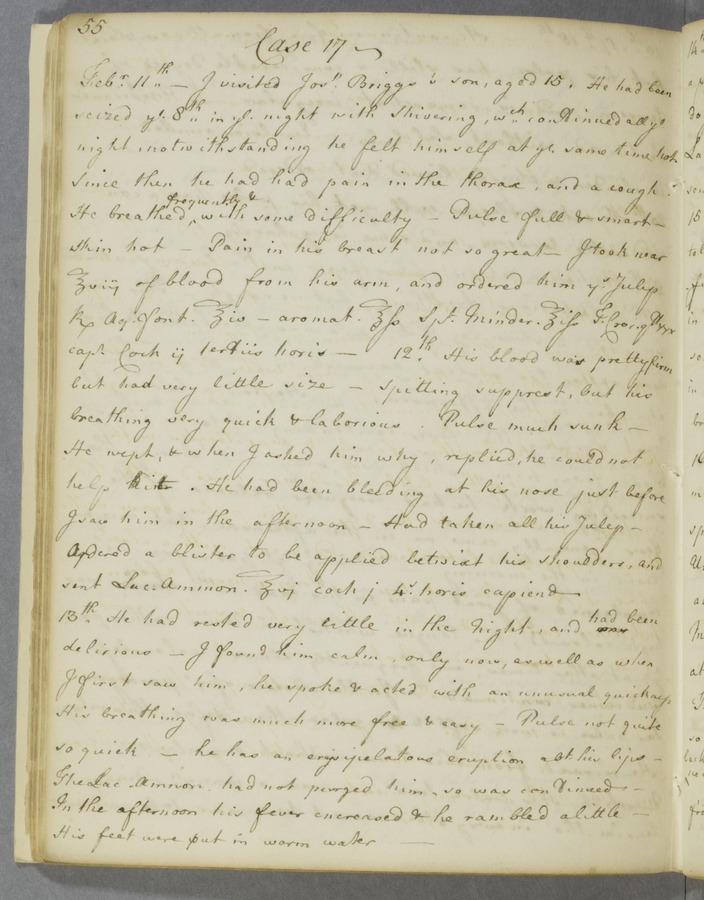 55
Case 17
Febr. 11th. — I visited Josh. Briggs's son, aged 15. He had been
seized ye. 8th in ye. night with shivering, wch. continued all ye
night, notwithstanding he felt himself at ye. same time hot.
Since then he had had pain in the thorax, and a cough.
frequently &
He breathed, with some difficulty — Pulse full & smart —
skin hot — Pain in his breast not so great — I took near
℥viij of blood from his arm, and ordered him ys. Julep
℞ Aq. font. ℥iv — aromat. ℥ss Spt. Minder. ℥iss
capt. Coch ij tertiis horis — 12th. His blood was pretty firm
but had very little size — spitting supprest, but his
breathing very quick & laborious. Pulse much sunk —
He wept, & when I asked him why, replied, he could not
help it. He had been bleeding at his nose just before
I saw him in the afternoon — Had taken all his Julep —
Ordered a blister to be applied betwixt his shoulders, and
sent Lac. Ammon. ℥vj coch j 4s. horis capiend
13th. He had rested very little in the night, and had been
delirious — I found him calm, only now, as well as when
I first saw him, he spoke & acted with an unusual quickness
His breathing was much more free & easy — Pulse not quite
so quick — he has an erysipelatous eruption abt his lips —
The Lac Ammon. had not purged him, so was continued —
In the afternoon his fever encreased & he rambled a little —
His feet were put in warm water —